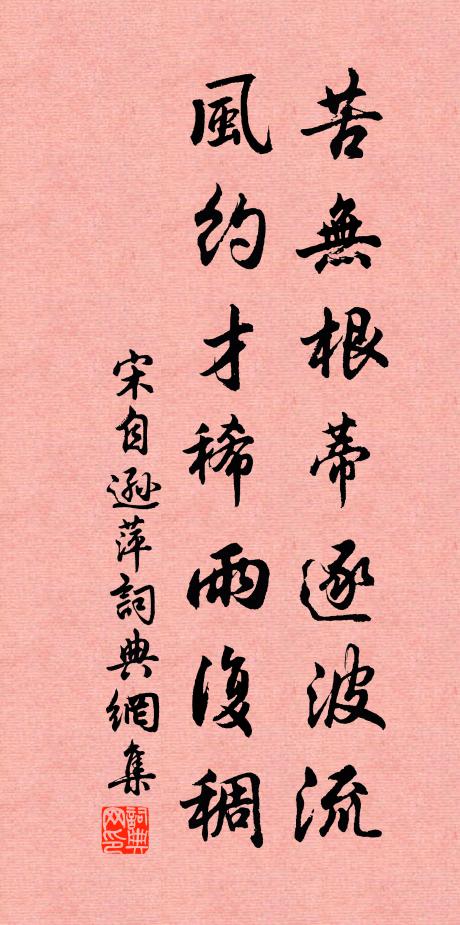 苦無根蒂逐波流
風約才稀雨復稠
宋自遜萍詞典網集
詞典网印